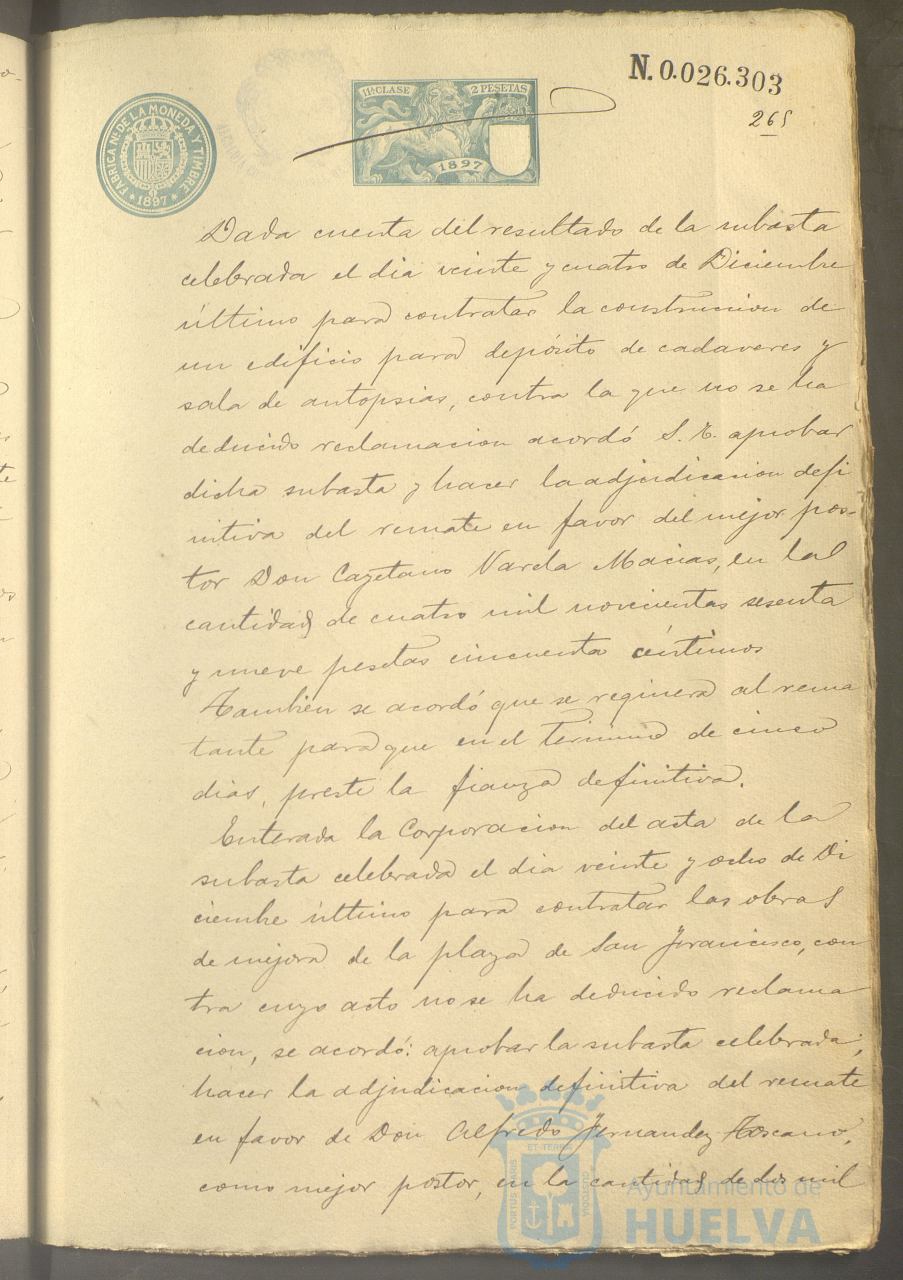 N. 0.026.303
265
11ª CLASE 2 PESETAS
1897
FABRICA Nal DE LA MONEDA Y TIMBRE
* 1897 *
Dada cuenta del resultado de la subasta
celebrada el dia veinte y cuatro de Diciembre
último para contratar la construccion de
un edificio para depósito de cadaveres y
sala de autopsias, contra la que no se ha
deducido reclamacion acordó S. E. aprobar
dicha subasta y hacer la adjudicacion defi
nitiva del remate en favor del mejor pos-
tor Don Cayetano Varela Macias, en la
cantidad de cuatro mil novecientas sesenta
y nueve pesetas cincuenta céntimos
Tambien se acordó que se requiera al rema
tante para que en el termino de cinco
dias, preste la fianza definitiva.
Enterada la Corporacion del acta de la
subasta celebrada el dia veinte y ocho de Di
ciembre último para contratar las obras
de mejora de la plaza de San Francisco, con
tra cuyo acto no se ha deducido reclama
cion, se acordó: aprobar la subasta celebrada;
hacer la adjudicacion definitiva del remate
en favor de Don Alfredo Fernandez Toscano,
como mejor postor, en la cantidad de dos mil
PORTUS MARIS
ET TERRAE
CUSTODIA
Ayuntamiento de
HUELVA